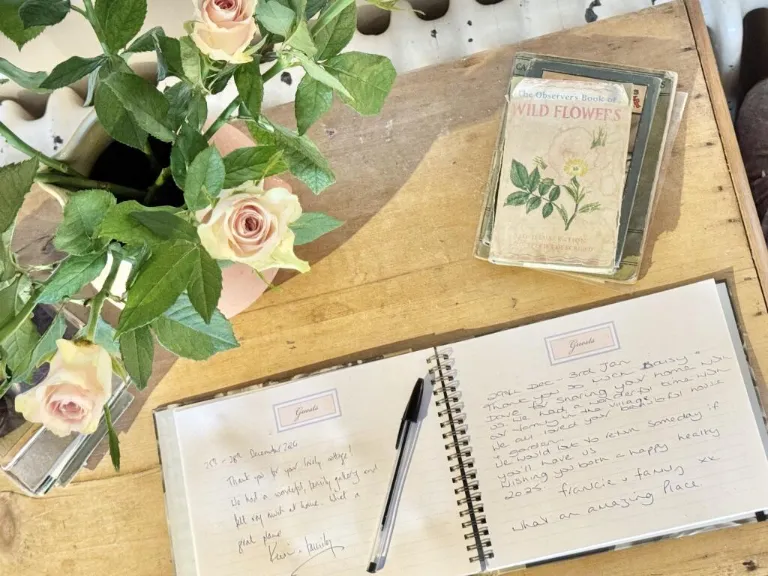 The Observer's Book of
WILD FLOWERS
Guests
December 2024
Thank you for your lovely cottage!
We had a wonderful, family gathering and
felt very much at home. What a
great place
Guests
Dec - 3rd Jan
Thank you so much Daisy +
Dave for sharing your home with
us. We had a wonderful time with
our family in the village.
We all loved your beautiful house
+ garden.
We would love to return someday if
you'll have us
Wishing you both a happy healthy
2025. Francie + fanny xx
What an amazing Place